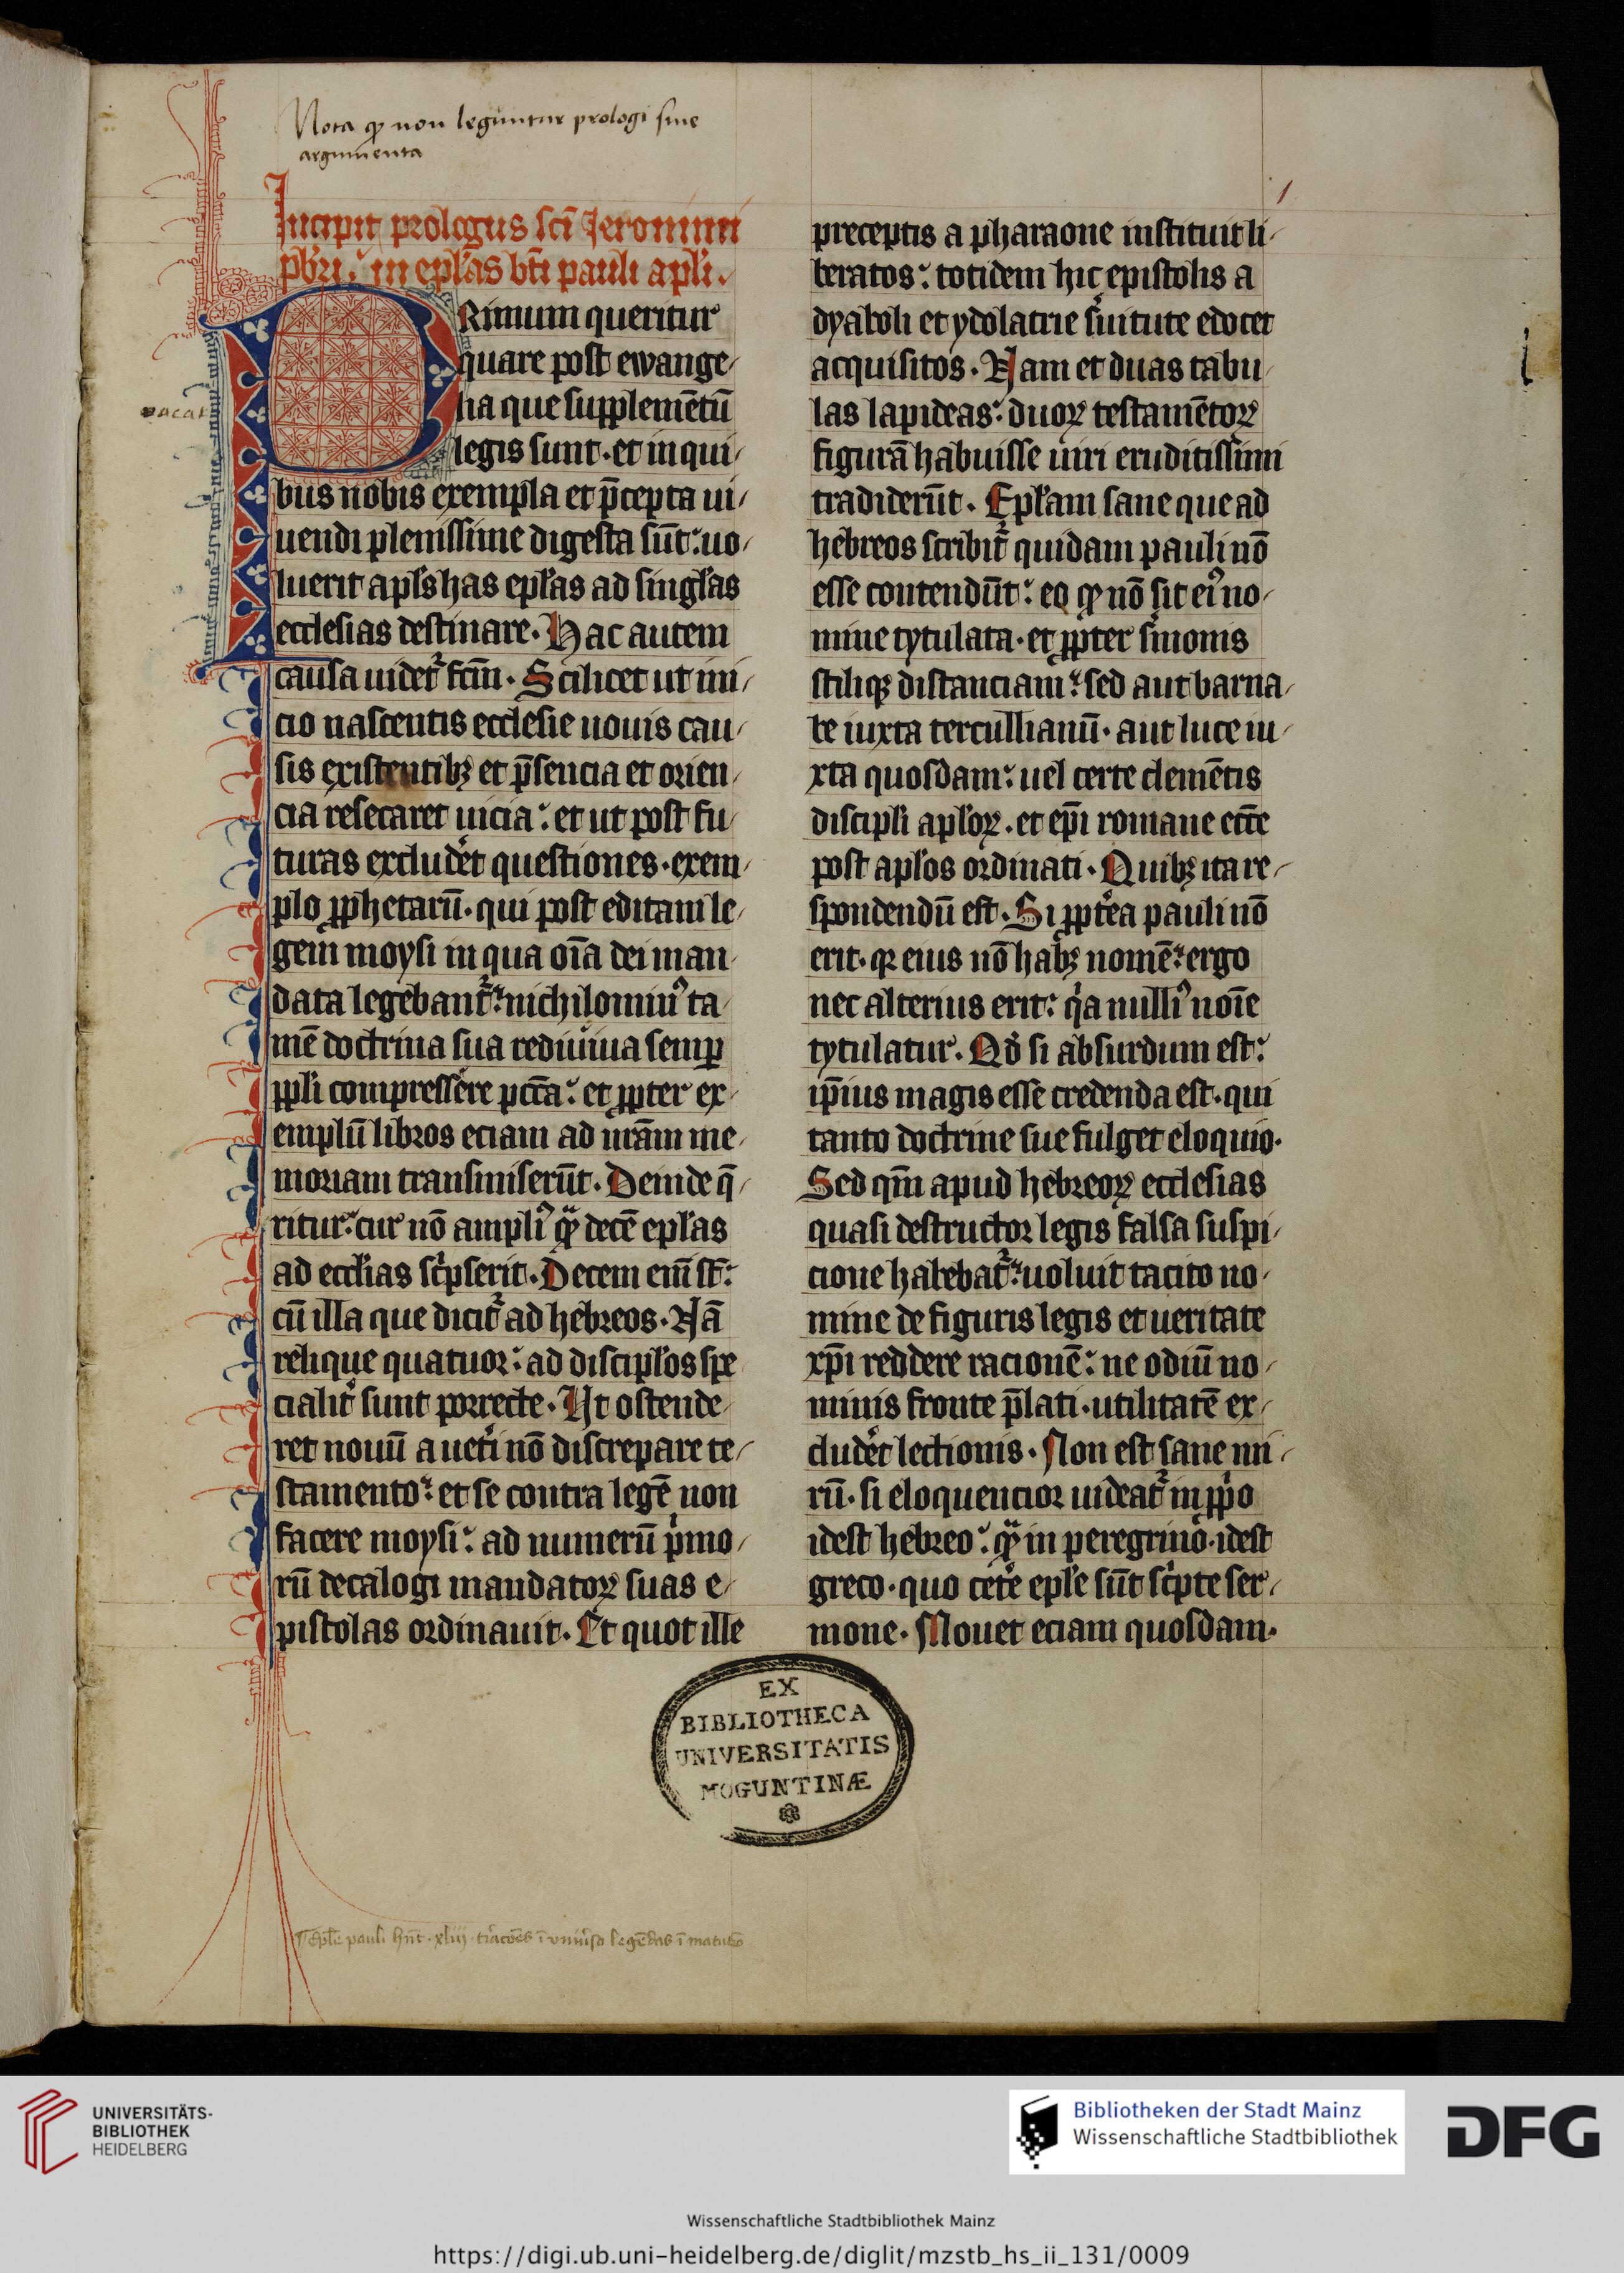 Nota ꝙ non leguntur prologi siue
argumenta
1
Incipit prologus scī Jeronimi
pb̄ri. in ep̄las bt̄i pauli apl̄i.
PRimum queritur
quare post ewange-
vacat
lia que supplemētū
legis sunt. et in qui-
bus nobis exempla et p̄cepta ui-
uendi plenissime digesta sūt: uo-
luerit apl̄s has epl̄as ad singl̄as
ecclesias destinare. Hac autem
causa uidet᷑ fcm̄. Scilicet ut ini-
cio nascentis ecclesie nouis cau-
sis existentibꝫ et p̄sencia et orien-
cia resecaret uicia: et ut post fu-
turas excludet᷑ questiones. exem-
plo ꝓphetarū. qui post editam le-
gem moysi in qua oīa dei man-
data legebant᷑: nichilominꝰ ta-
mē doctrina sua rediuiua semꝑ
ppl̄i compressere pctā: et ꝓpter ex-
emplū libros eciam ad nrām me-
moriam transmiserūt. Deinde q̄-
ritur: cur nō ampliꝰ qͣꝫ decē epl̄as
ad eccl̄ias sc͛pserit. Decem em̄ st̄:
cū illa que dicit᷑ ad hebreos. Nā
relique quatuor: ad discipl̄os spe
cialit᷑ sunt porrecte. Ut ostende-
ret nouū a uet͛i nō discrepare te-
stamento: et se contra legē non
facere moysi: ad numerū p͛mo-
rū decalogi mandatoꝝ suas e-
pistolas ordinauit. Et quot ille
preceptis a pharaone instituit li-
beratos: totidem hic epistolis a
dyaboli et ydolatrie s͛uitute edocet
acquisitos. Nam et duas tabu-
las lapideas: duoꝝ testamētoꝝ
figurā habuisse uiri eruditissimi
tradiderūt. Epl̄am sane que ad
hebreos scribit᷑ quidam pauli nō
esse contendūt: eo ꝙ nō sit eiꝰ no-
mine tytulata. et ꝓpter s͛monis
stiliqꝫ distanciam: sed aut barna-
be iuxta tercullianū. aut luce iu-
xta quosdam: uel certe clemētis
discipl̄i apl̄oꝝ. et ep̄i romane ecc̄e
post apl̄os ordinati. Quibꝫ ita re-
spondendū est. Si ꝓpt͛ea pauli nō
erit. qꝛ eius nō habꝫ nomē: ergo
nec alterius erit: qͥa nulliꝰ noīe
tytulatur. Qd̄ si absurdum est:
ip̄ius magis esse credenda est. qui
tanto doctrine sue fulget eloquio.
Sed qm̄ apud hebreoꝝ ecclesias
quasi destructor legis falsa suspi-
cione habebat᷑: uoluit tacito no-
mine de figuris legis et ueritate
xp̄i reddere racionē: ne odiū no-
minis fronte p̄lati. utilitatē ex-
cludet᷑ lectionis. Non est sane mi-
rū. si eloquencior uideat᷑ in ꝓp͛o
idest hebreo: qͣꝫ in peregrino. idest
greco. quo cet͛e epl̄e sūt sc͛pte ser-
mone. Mouet eciam quosdam.
EX
BIBLIOTHECA
UNIVERSITATIS
MOGUNTINÆ
Epl̄e pauli hn̄t xliij
UNIVERSITÄTS-
BIBLIOTHEK
HEIDELBERG
Bibliotheken der Stadt Mainz
Wissenschaftliche Stadtbibliothek
DFG
Wissenschaftliche Stadtbibliothek Mainz
https://digi.ub.uni-heidelberg.de/diglit/mzstb_hs_ii_131/0009